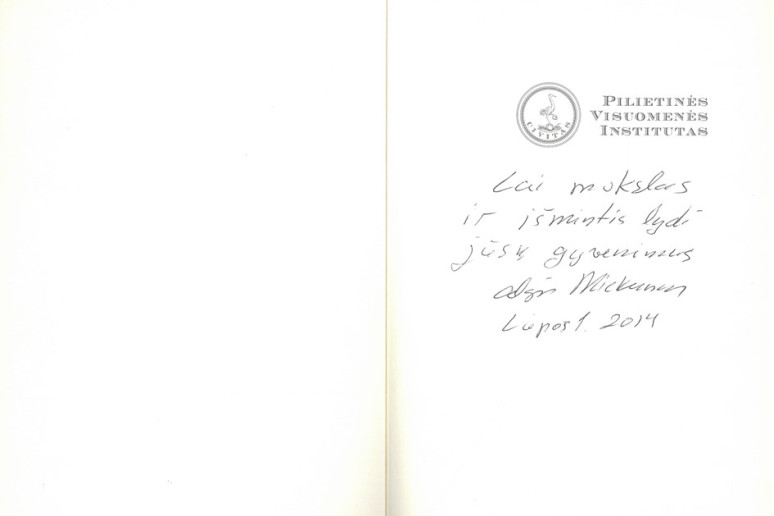 CIVITAS
PILIETINĖS
VISUOMENĖS
INSTITUTAS
Lai mokslas
ir išmintis lydi
jūsų gyvenimus
Algis Mickunas
Liepos 1. 2014